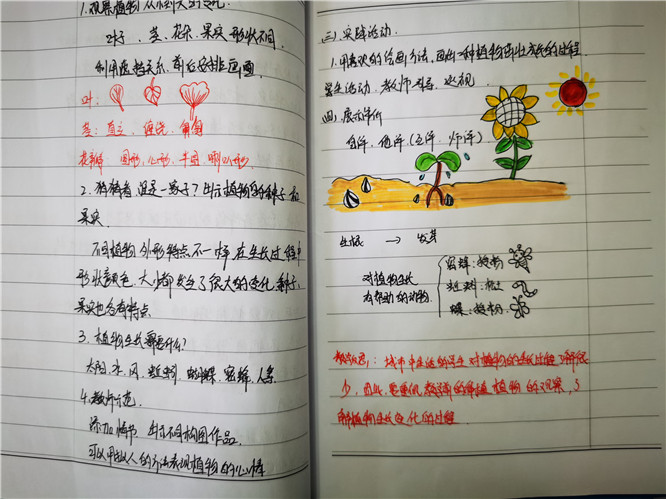 1.观察植物从小到大的变化.
叶子、茎、花朵、果实形状不同.
利用遮挡关系、前后安排画面.
叶:
茎:直立、缠绕、匍匐
花瓣 圆形,心形,半圆,喇叭形
2.猜猜看谁是一家子?出示植物的种子和
果实.
不同植物外形特点不一样在生长过程中
形状颜色、大小都发生了很大的变化.种子、
果实也各有特点.
3.植物生长需要什么?
太阳、水、风、肥料、蝴蝶、蜜蜂、人类
4.教师示范.
添加情节、出示不同构图作品.
可以用拟人的方法表现植物的心情
三.实践活动.
1.用喜欢的绘画方法,画出一种植物的生长的过程.
学生活动、教师指导、巡视.
四.展示评价
自评、他评(互评、师评)
生根 → 发芽
对植物生长
有帮助的动物
蜜蜂:授粉
蚯蚓:松土
蝶:授粉
教学反思:城市中生活的学生对植物的生长过程了解很
少,因此,需要
植物的观察,了
解植物生长变化的过程.